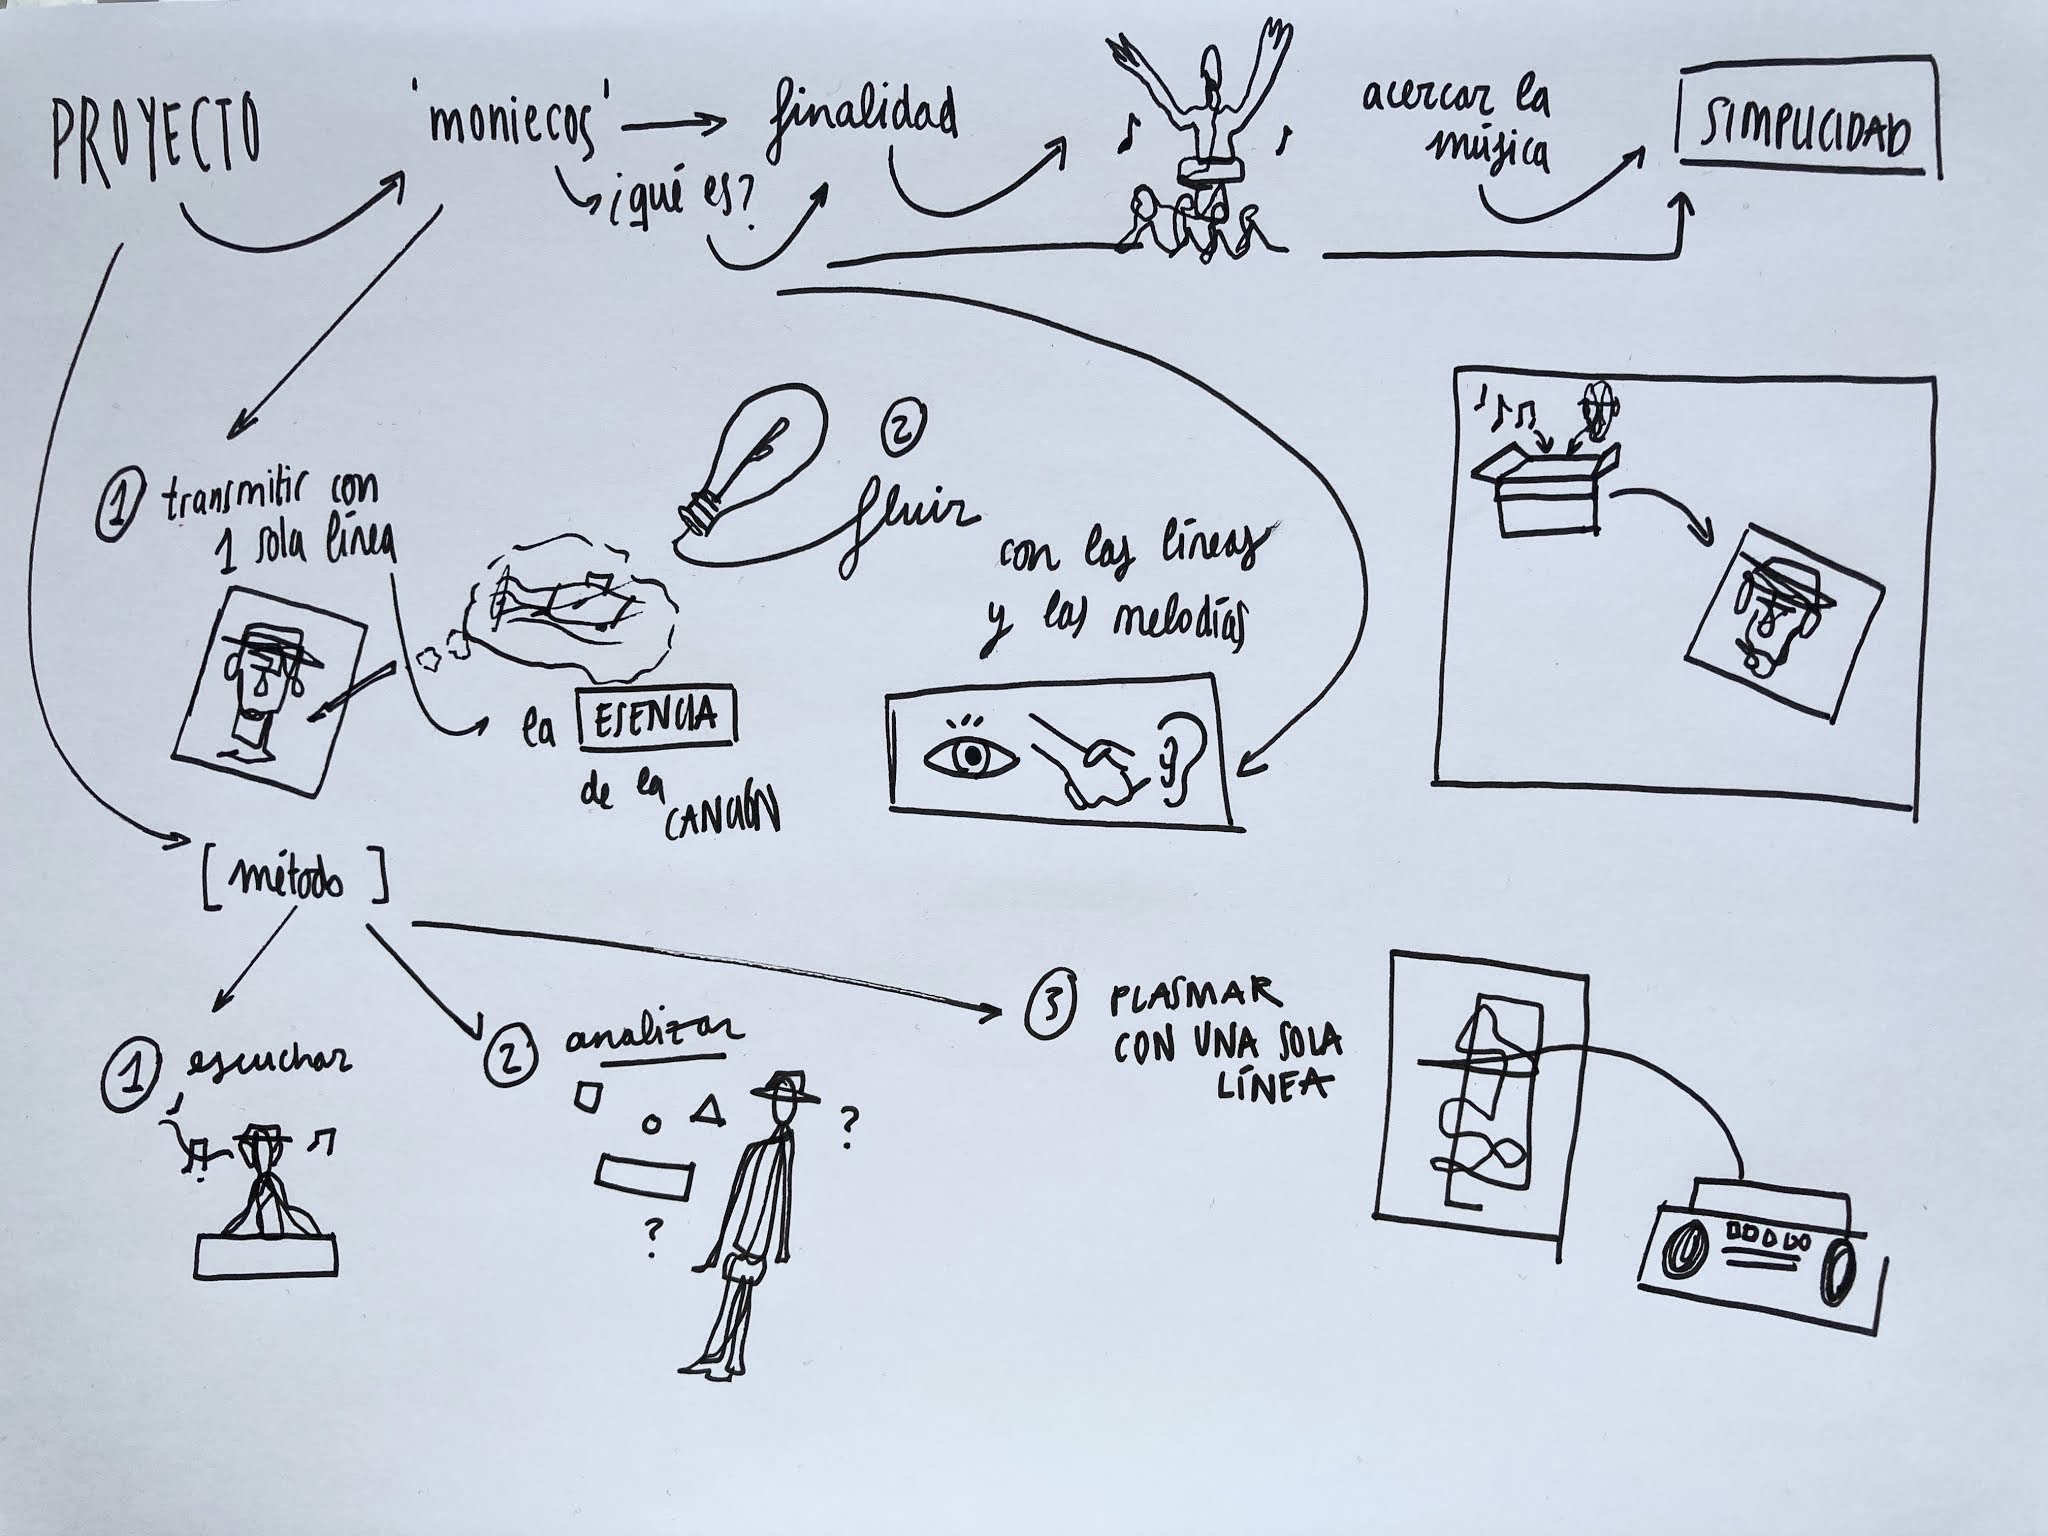 PROYECTO
'moniecos'
finalidad
acercar la
música
SIMPLICIDAD
¿qué es?
1 transmitir con
1 sola línea
la ESENCIA
de la
CANCIÓN
2
fluir
con las líneas
y las melodías
[método]
1 escuchar
2 analizar
?
?
3 PLASMAR
CON UNA SOLA
LÍNEA